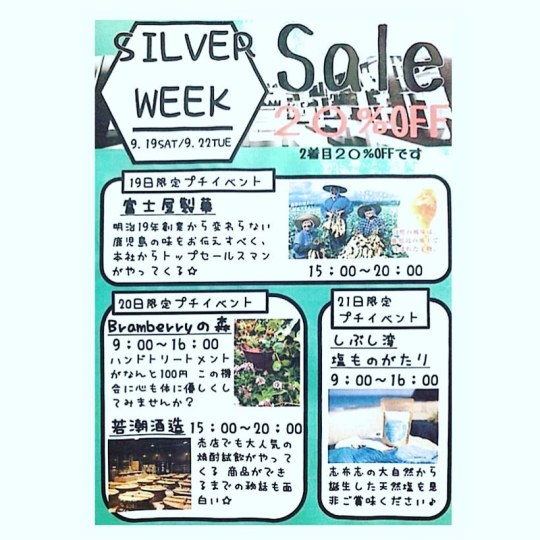 SILVER
WEEK
9.19SAT/9.22TUE
Sale
20%OFF
2着目20%OFFです
19日限定プチイベント
富士屋製菓
明治19年創業から変わらない
鹿児島の味をお伝えすべく、
本社からトップセールスマン
がやってくる☆
15:00~20:00
20日限定プチイベント
Bramberryの森
9:00~16:00
ハンドトリートメント
がなんと100円 この機
会に心も体に優しくし
てみませんか?
若潮酒造 15:00~20:00
売店でも大人気の
焼酎試飲がやって
くる 商品ができ
るまでの動話も面
白い☆
21日限定
プチイベント
しぶし湾
塩ものがたり
9:00~16:00
志布志の大自然から
誕生した天然塩を是
非ご賞味ください♪